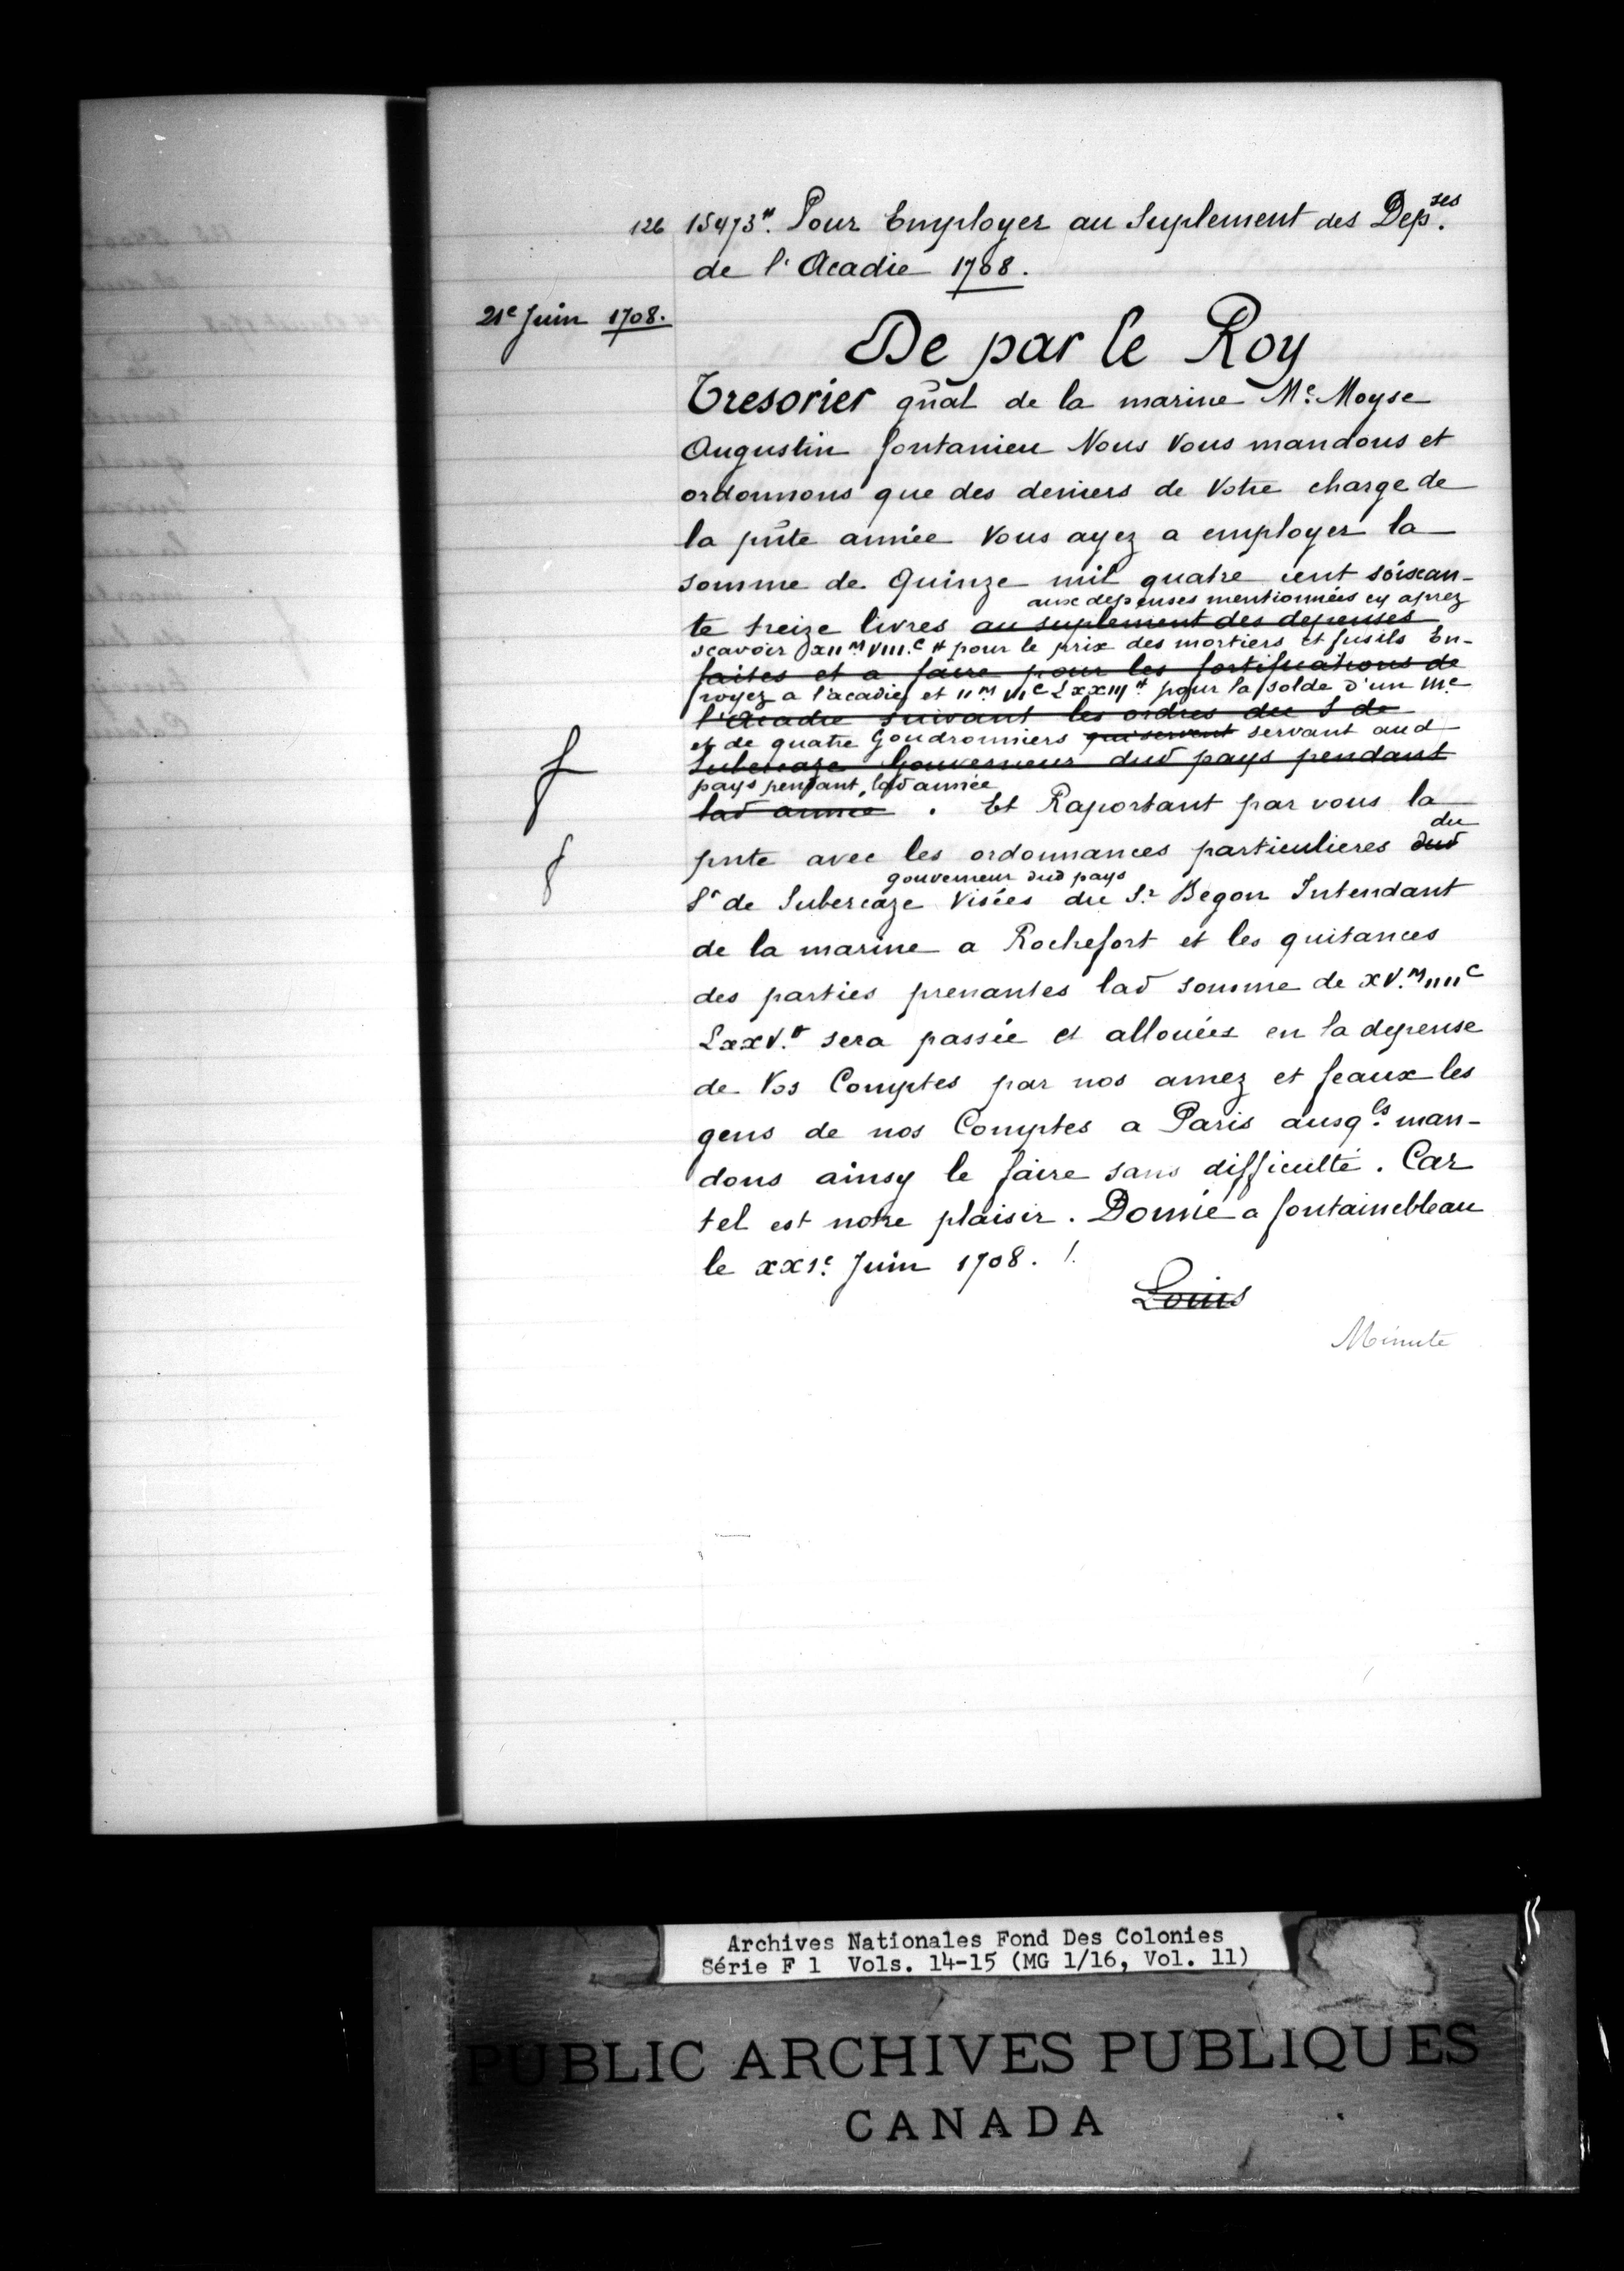 126 15473#. Pour Employer au Suplement des Dep.ses
de l'Acadie 1708.
21e Juin 1708.
De par le Roy
Tresorier gñal de la marine Me. Moyse
Augustin fontanieu Nous Vous mandons et
ordonnons que des deniers de Votre charge de
la pñte année Vous ayez a employer la
somme de Quinze mil quatre cent soixan-
aux depenses mentionnées cy aprez
te treize livres au suplement des depenses
scavoir XIIm VIII.c # pour le prix des mortiers et fusils En-
faites et a faire pour les fortifications de
voyez a l'acadie et IIm VIc LXXIII# pour la solde d'un Me
l'Acadie suivant les ordres du S de
et de quatre Goudronniers qui servent servant aud
Subercaze Gouverneur dud pays pendant
pays pendant lad année
lad année . Et Raportant par vous la
du
pnte avec les ordonnances particulieres dud
gouverneur dud pays
Sr de Subercaze Visées du Sr. Begon Intendant
de la marine a Rochefort et les quitances
des parties prenantes lad somme de XV.m IIIIc
LXXV.# sera passée et allouées en la depense
de Vos Comptes par nos amez et feaux les
gens de nos Comptes a Paris ausq.ls man-
dons ainsy le faire sans difficulté. Car
tel est notre plaisir. Donné a fontainebleau
le XXIe. Juin 1708. /.
Louis
Minute
Archives Nationales Fond Des Colonies
Série F 1 Vols. 14-15 (MG 1/16, Vol. 11)
PUBLIC ARCHIVES PUBLIQUES
CANADA